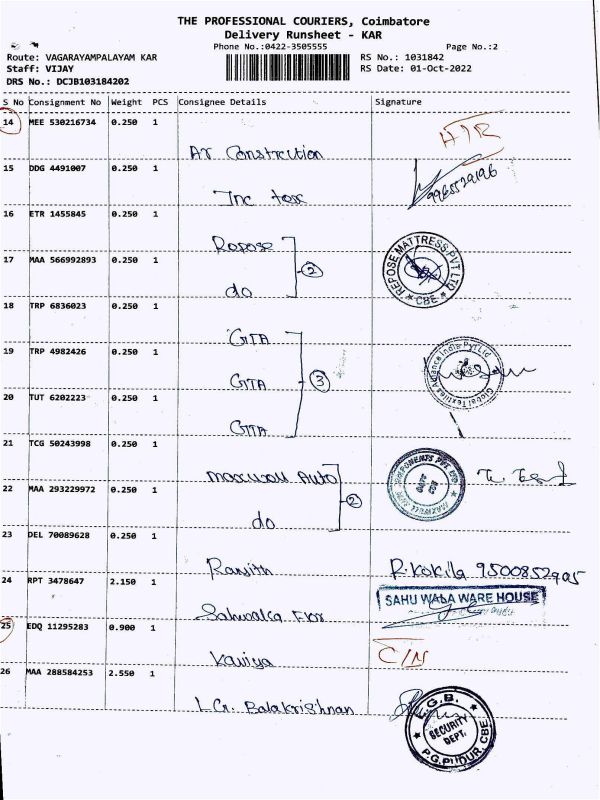 THE PROFESSIONAL COURIERS, Coimbatore
Delivery Runsheet - KAR
Phone No.:0422-3505555 Page No.:2
Route: VAGARAYAMPALAYAM KAR RS No.: 1031842
Staff: VIJAY RS Date: 01-Oct-2022
DRS No.: DCJB103184202
S No Consignment No Weight PCS Consignee Details Signature
14 MEE 530216734 0.250 1
Ar Constrcution
15 DDG 4491007 0.250 1
Inc tax 9968529196
16 ETR 1455845 0.250 1
Repose
17 MAA 566992893 0.250 1 REPOSE MATTRESS PVT LTD
do 2 * CBE *
18 TRP 6836023 0.250 1
GTA
19 TRP 4982426 0.250 1 Global Textiles Alliance India Pvt Ltd
GTA 3
20 TUT 6202223 0.250 1
GTA
21 TCG 50243998 0.250 1
Maxwall Auto COMPONENTS PVT LTD
22 MAA 293229972 0.250 1 2
do
23 DEL 70089628 0.250 1
Ranjith R.Kokila 9500852905
24 RPT 3478647 2.150 1 SAHU WADA WARE HOUSE
25 EDQ 11295283 0.900 1
Kaviya C/N
26 MAA 288584253 2.550 1
L.G. Balakrishnan L.G.B. SECURITY DEPT. P.G.PUDUR, CBE.